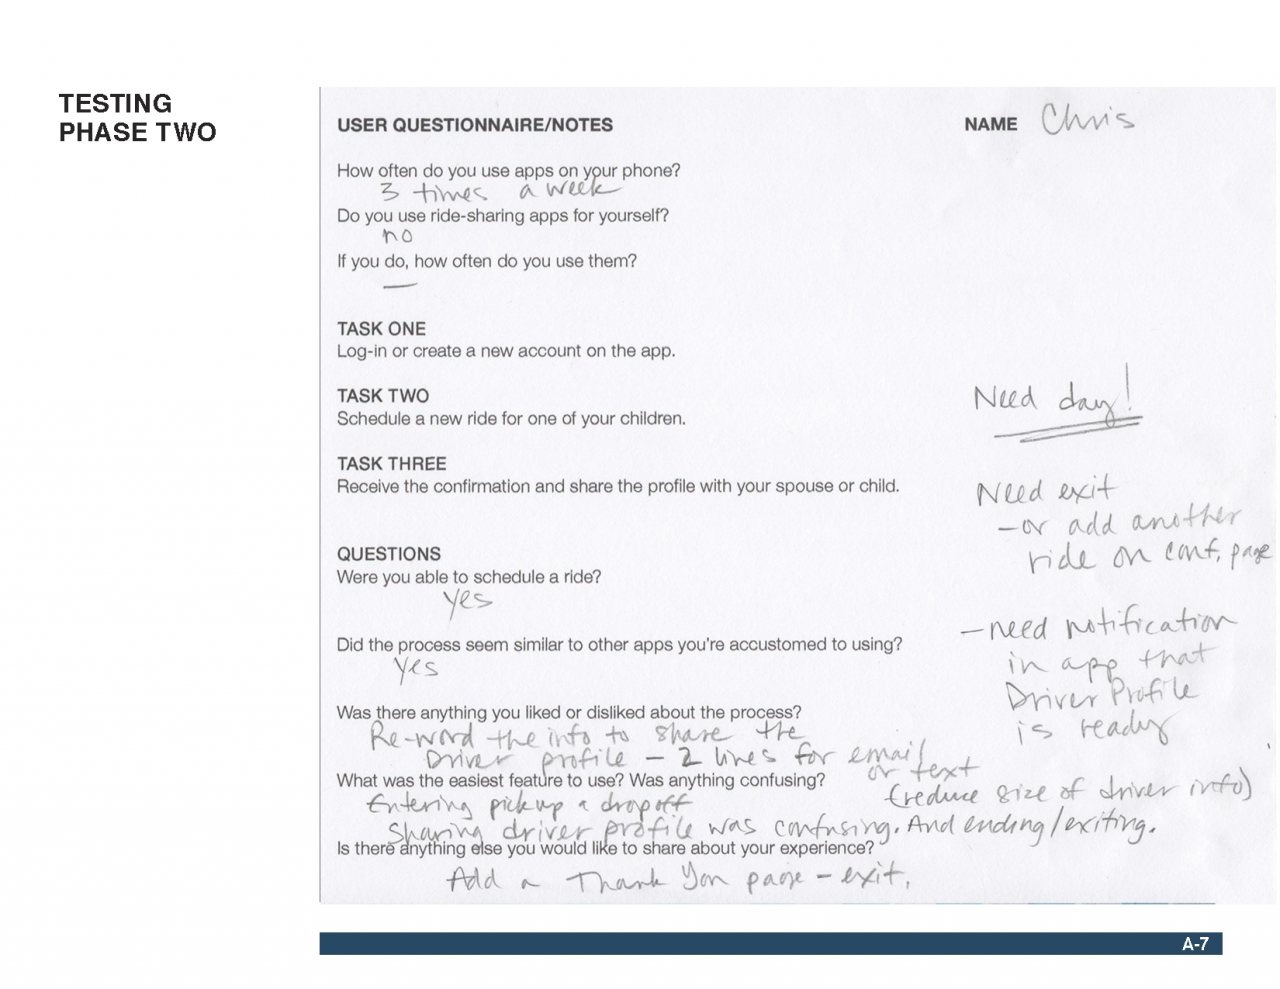 TESTING
PHASE TWO
USER QUESTIONNAIRE/NOTES
NAME Chris
How often do you use apps on your phone?
3 times a week
Do you use ride-sharing apps for yourself?
no
If you do, how often do you use them?
—
TASK ONE
Log-in or create a new account on the app.
TASK TWO
Schedule a new ride for one of your children.
Need day!
TASK THREE
Receive the confirmation and share the profile with your spouse or child.
Need exit
-or add another
ride on conf. page
QUESTIONS
Were you able to schedule a ride?
yes
Did the process seem similar to other apps you're accustomed to using?
yes
-need notification
in app that
Driver Profile
is ready
Was there anything you liked or disliked about the process?
Re-word the info to share the
Driver profile - 2 lines for email
or text
(reduce size of driver info)
What was the easiest feature to use? Was anything confusing?
Entering pickup & dropoff
Sharing driver profile was confusing. And ending/exiting.
Is there anything else you would like to share about your experience?
Add a Thank You page - exit.
A-7